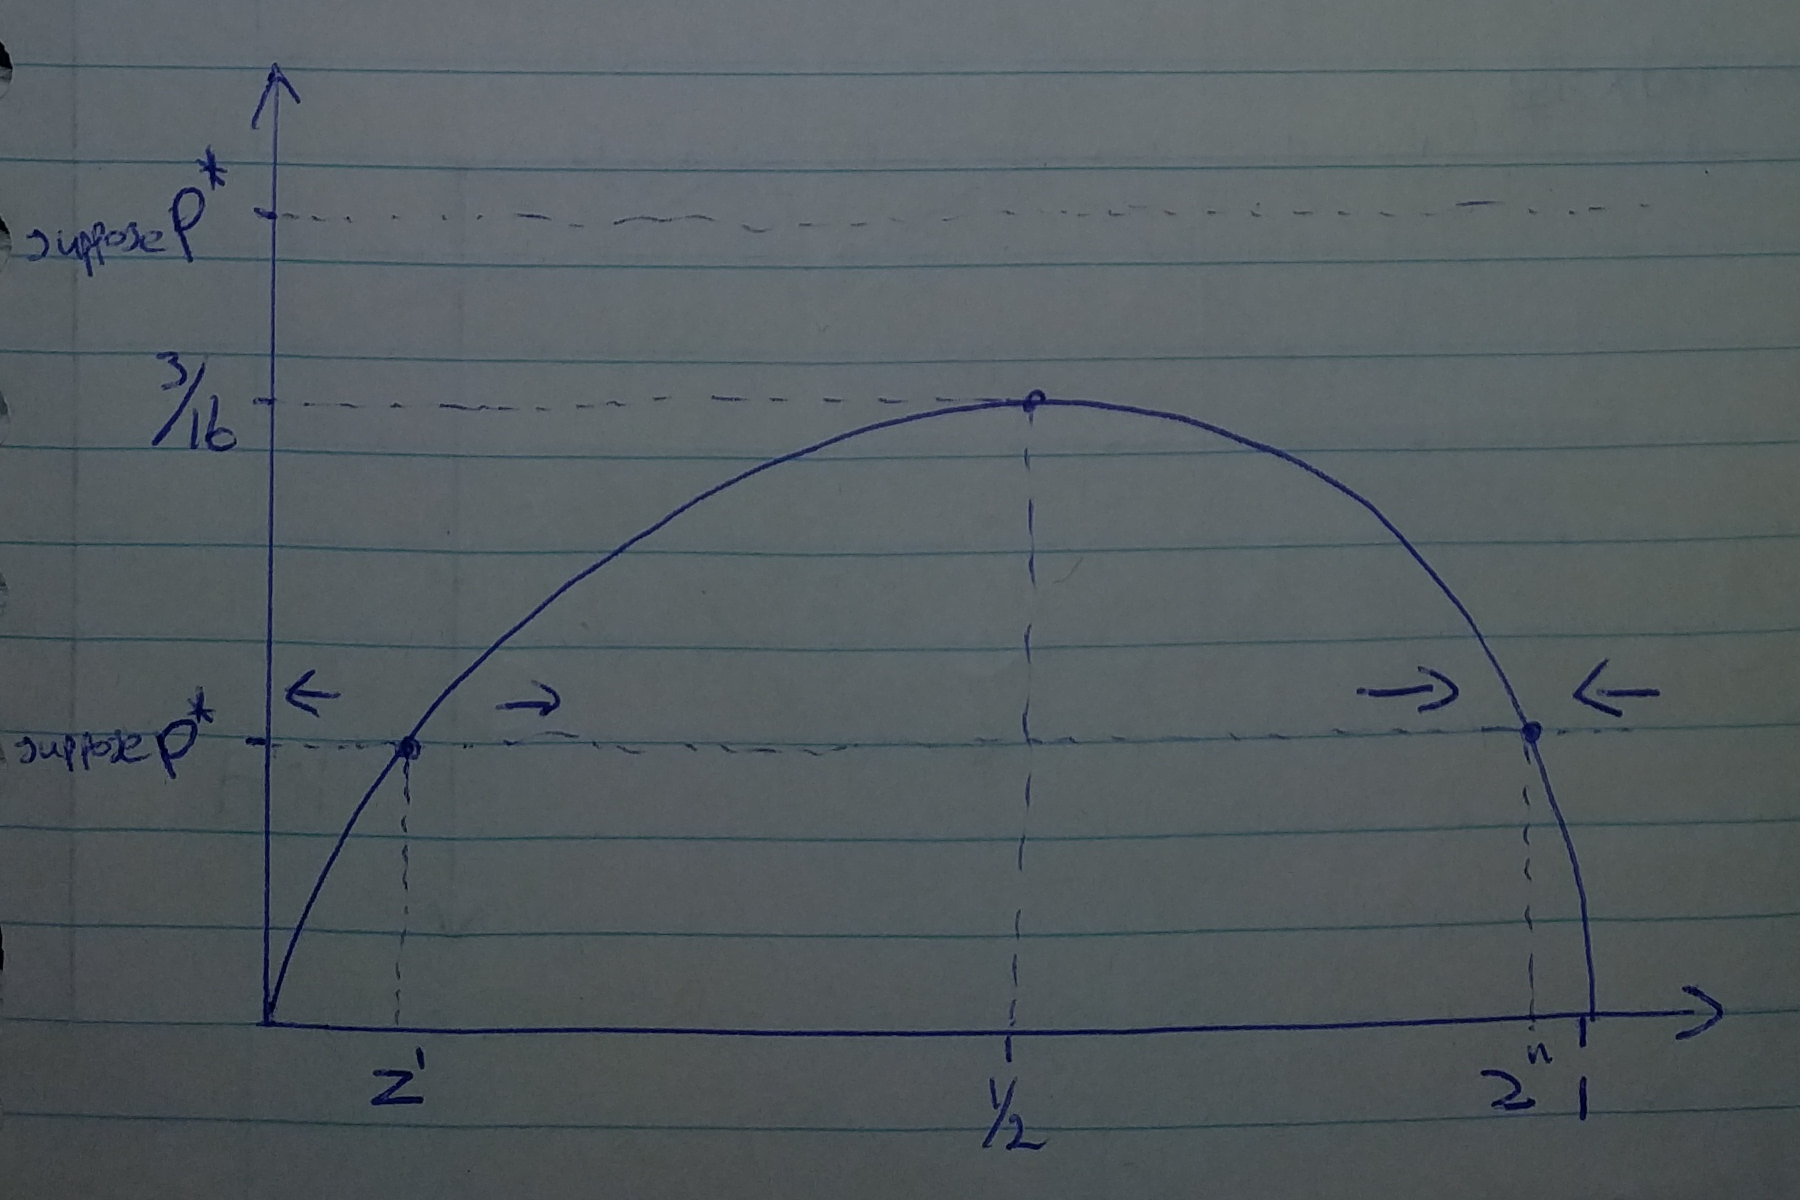 suppose P*
3/16
suppose P*
z'
1/2
z"
1